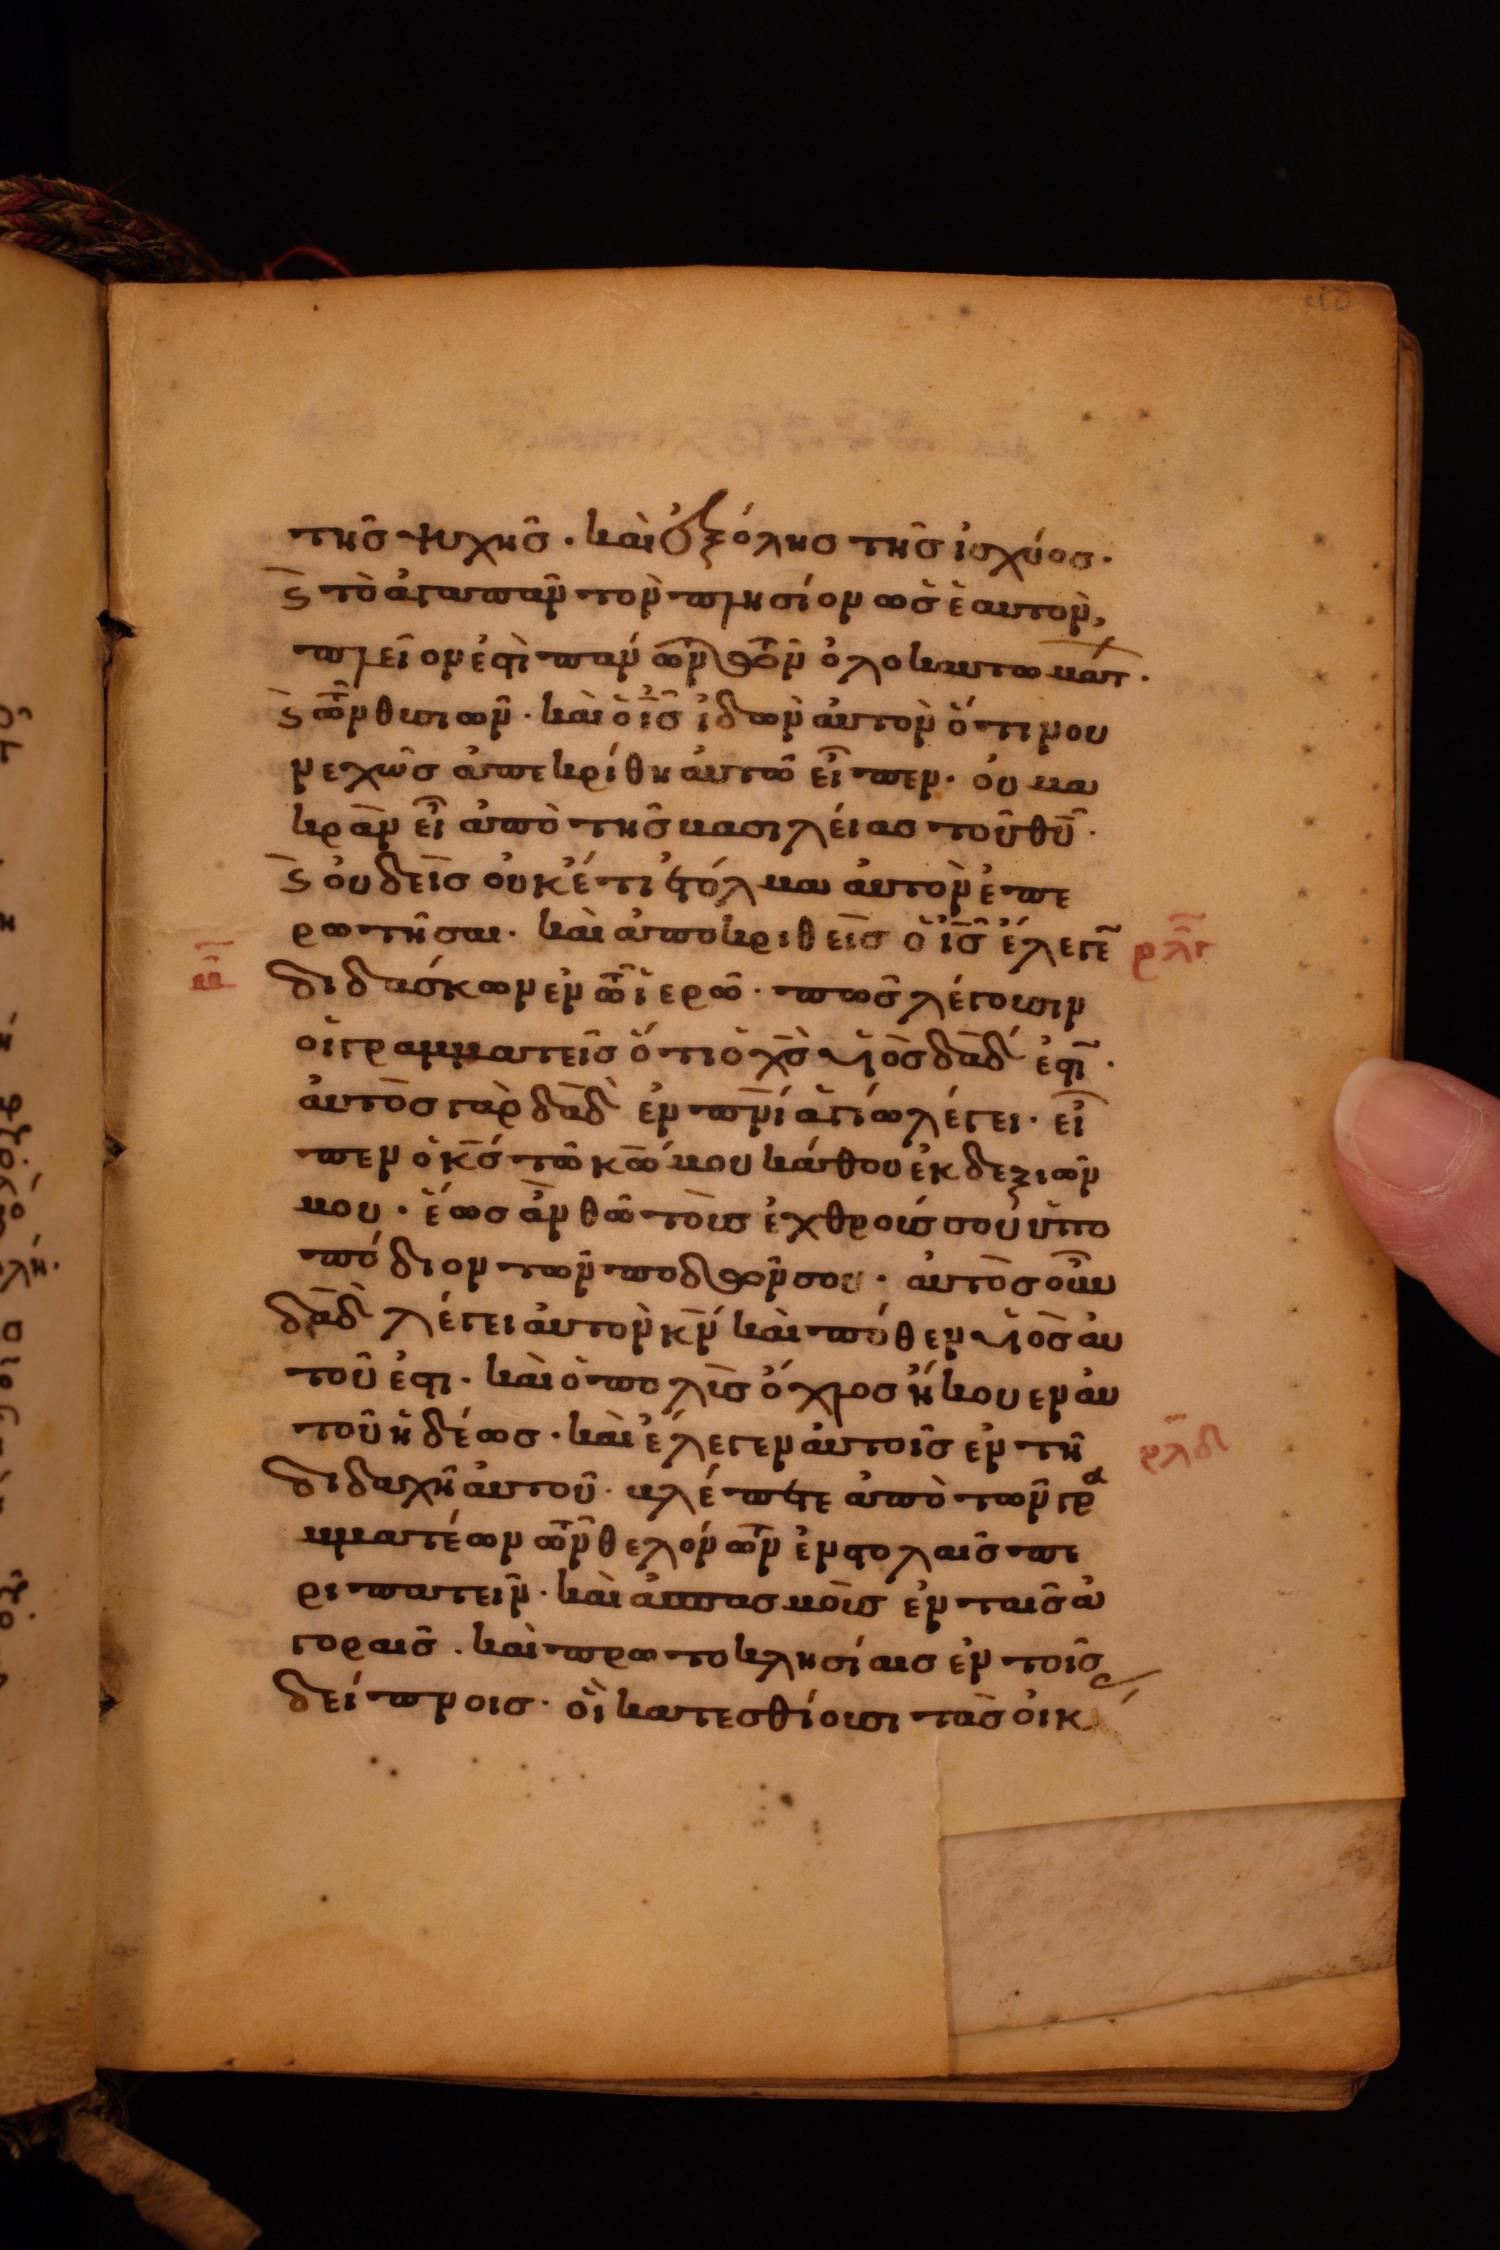 τῆς ψυχῆς · καὶ ἐξ ὅλης τῆς ἰσχύος ·
ϗ τὸ ἀγαπᾶν τὸν πλησίον ὡς ἑαυτὸν,
πλεῖον ἐστὶ πάντων τῶν ὁλοκαυτωμάτ ·
ϗ τῶν θυσιῶν · καὶ ὁ ις ἰδὼν αὐτὸν ὅτι νου
νεχῶς ἀπεκρίθη αὐτῶ εἶπεν · οὐ μα
κρὰν εἶ ἀπὸ τῆς βασιλείας τοῦ θυ ·
ϗ οὐδεὶς οὐκέτι ἐτόλμα αὐτὸν ἐπε
ρωτῆσαι · καὶ ἀποκριθεὶς ὁ ις ἔλεγε
ρλγ
διδάσκων ἐν τῶ ἱερῶ · πῶς λέγουσιν
οἱ γραμματεῖς ὅτι ὁ χς υἱὸς δαδ ἐστι ·
αὐτὸς γὰρ δαδ ἐν πνι ἁγίω λέγει · εἶ
πεν ὁ κς τῶ κω μου κάθου ἐκ δεξιῶν
μου · ἕως ἂν θῶ τοὺς ἐχθρούς σου ὑπο
πόδιον τῶν ποδῶν σου · αὐτὸς οὖν
δαδ λέγει αὐτὸν κν καὶ πόθεν υἱὸς αὐ
τοῦ ἐστι · καὶ ὁ πολὺς ὄχλος ἤκουεν αὐ
τοῦ ἡδέως · καὶ ἔλεγεν αὐτοῖς ἐν τῆ
ρλδ
διδαχῆ αὐτοῦ · βλέπετε ἀπὸ τῶν γρα
μματέων τῶν θελόντων ἐν στολαῖς πε
ριπατεῖν · καὶ ἀσπασμοὺς ἐν ταῖς ἀ
γοραῖς · καὶ πρωτοκλησίαις ἐν τοῖς
δείπνοις · οἱ κατεσθίουσι τὰς οἰκ